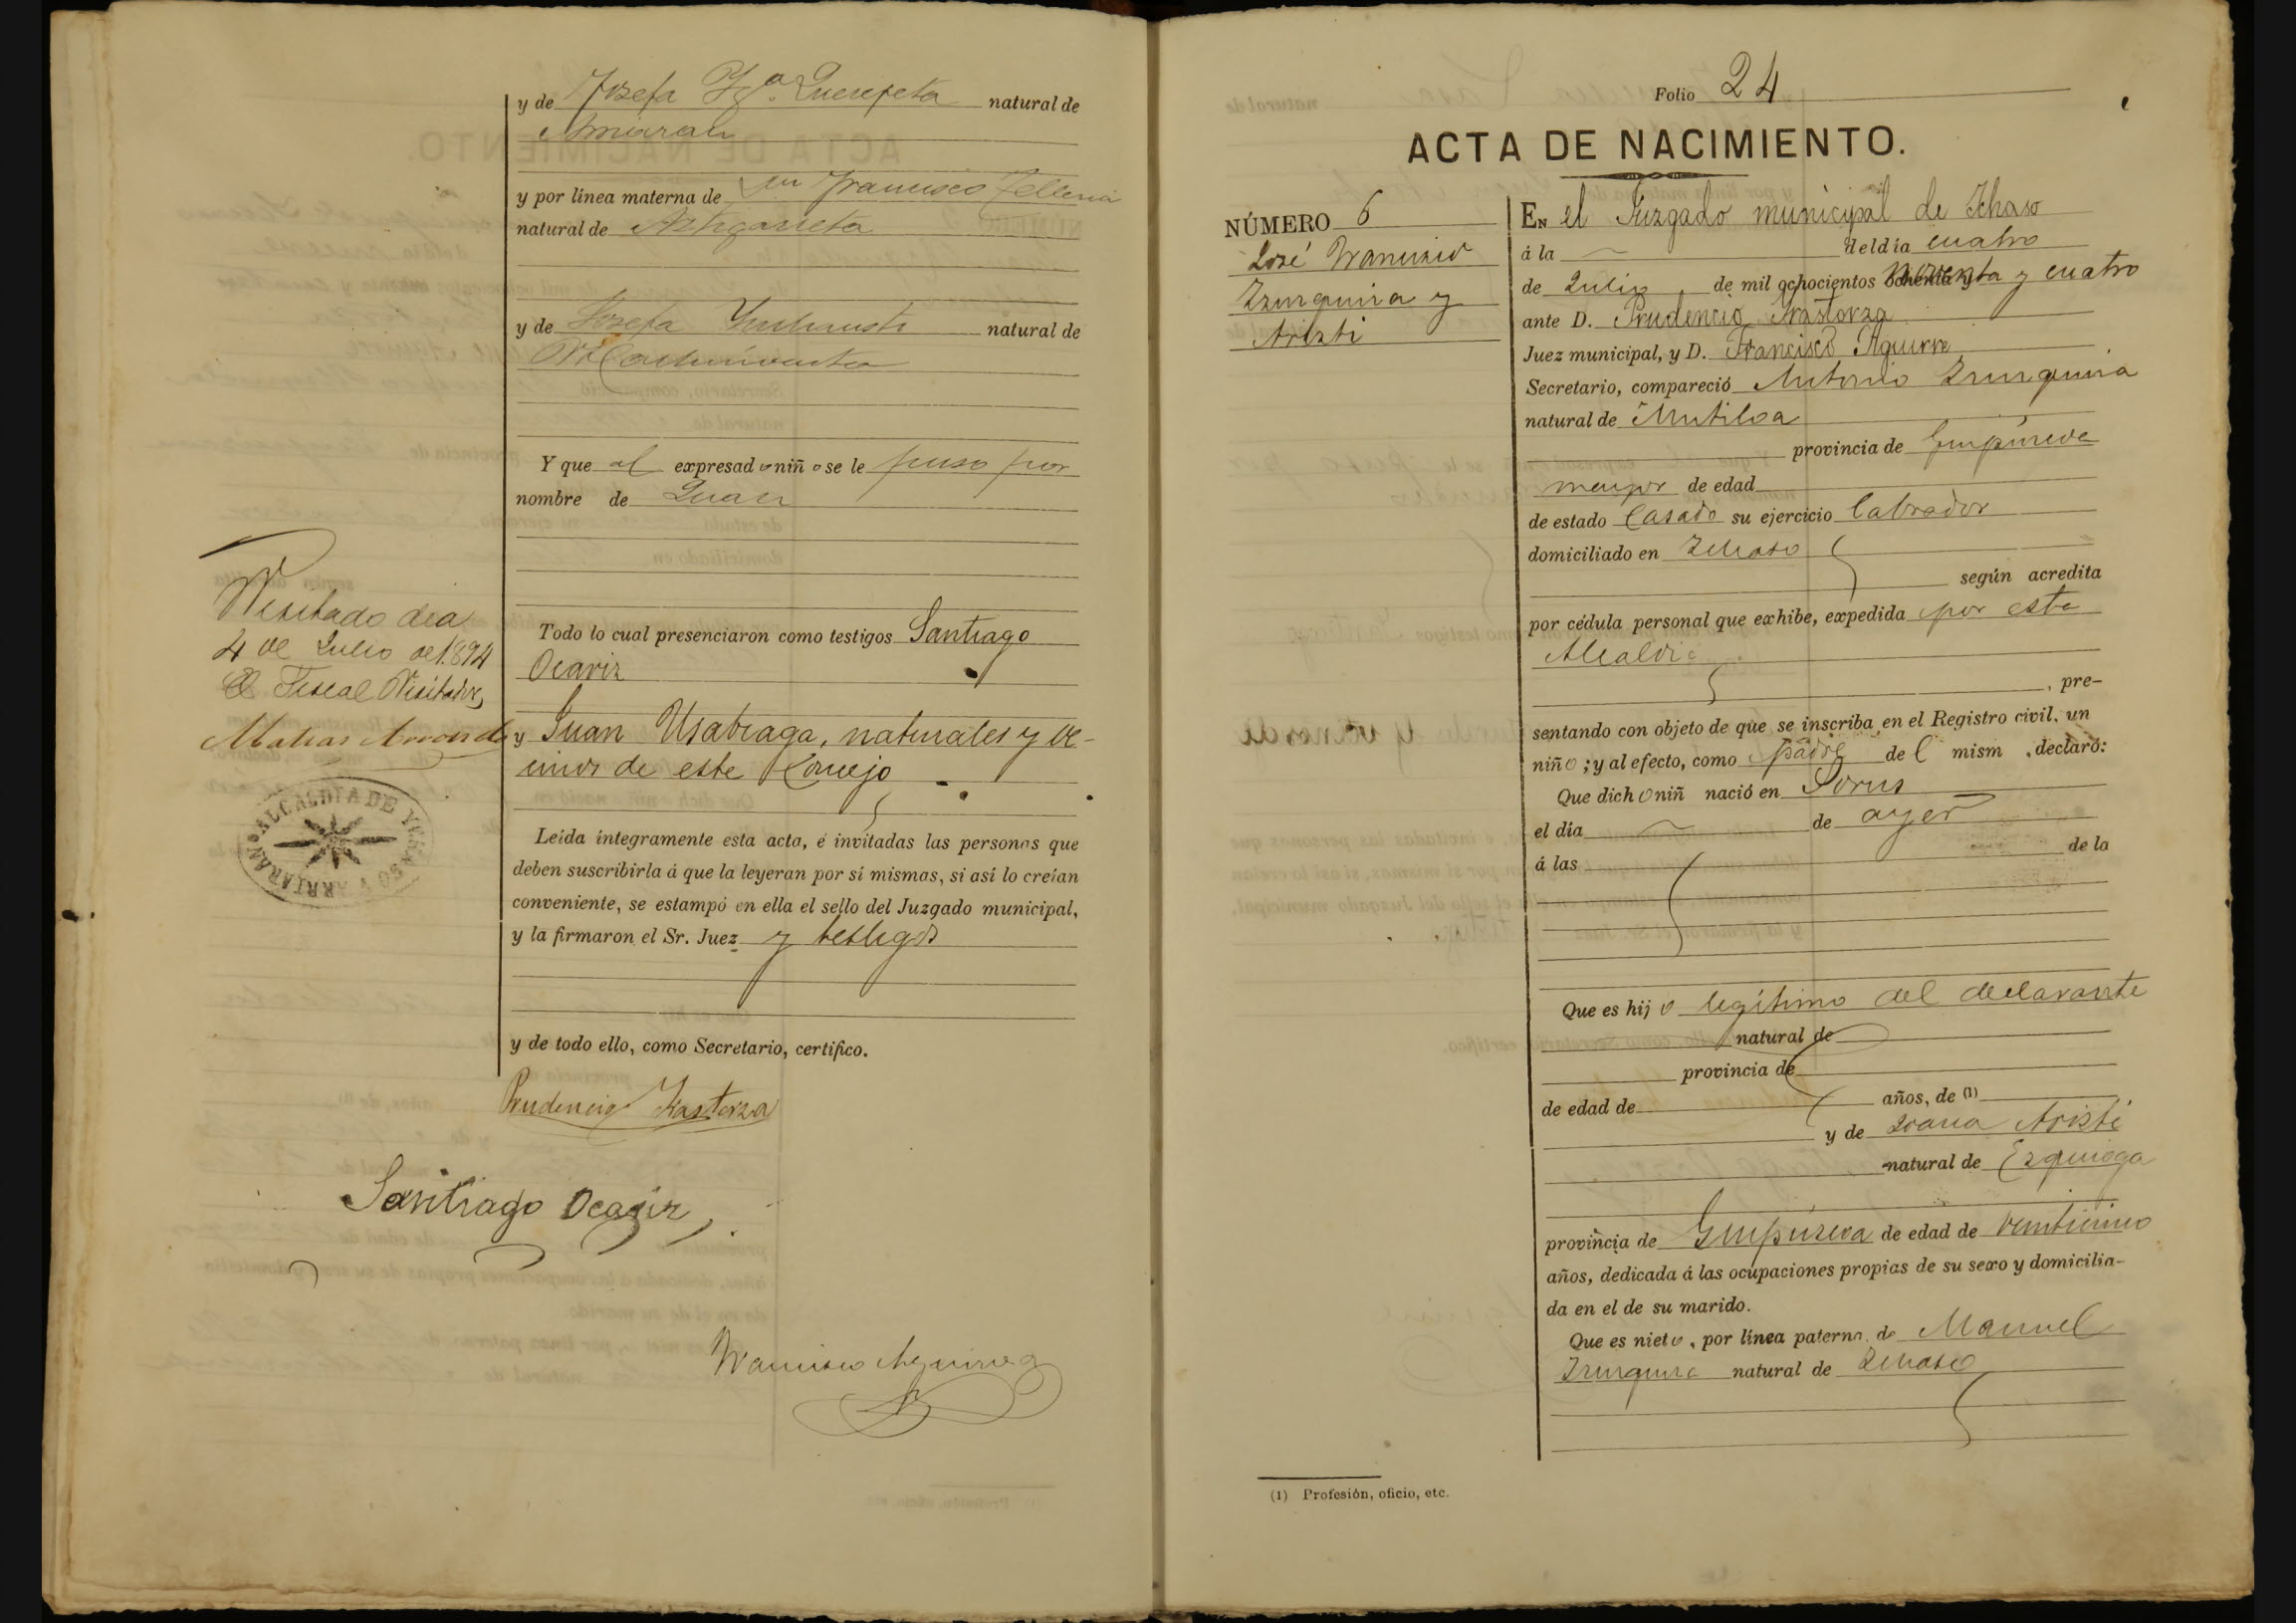 y de Josefa Yg.ª Querejeta natural de
y por línea materna de Juan Francisco Telleria
natural de Astigarreta
y de Josefa natural de
Y que al expresado niño se le puso por
nombre de Juan
Todo lo cual presenciaron como testigos Santiago
Ocariz
y Juan Usabiaga, naturales y ve-
cinos de este Concejo
Leída íntegramente esta acta, é invitadas las personas que
deben suscribirla á que la leyeran por sí mismas, si así lo creían
conveniente, se estampó en ella el sello del Juzgado municipal,
y la firmaron el Sr. Juez y testigos
y de todo ello, como Secretario, certifico.
Prudencio Yrastorza
Santiago Ocariz
Francisco Aguirre
Visitado dia
4 de Julio de 1.894
El Fiscal Visitador,
Matias
ALCALDIA DE YCHASO Y ARRIARAN
Folio 24
ACTA DE NACIMIENTO.
NÚMERO 6
José Francisco
Izurquiza y
Aristi
EN el Juzgado municipal de Ichaso
á la del día cuatro
de Julio de mil ochocientos noventa y cuatro
ante D. Prudencio Yrastorza
Juez municipal, y D. Francisco Aguirre
Secretario, compareció Antonio Izurquiza
natural de Mutiloa
provincia de Guipúzcoa
mayor de edad
de estado Casado su ejercicio labrador
domiciliado en Ichaso
según acredita
por cédula personal que exhibe, expedida por esta
Alcaldia
, pre-
sentando con objeto de que se inscriba en el Registro civil, un
niño; y al efecto, como padre del mism , declaró:
Que dicho niñ nació en
el día de ayer
á las de la
Que es hijo legítimo del declarante
natural de
provincia de
de edad de años, de (1)
y de Juana Aristi
natural de Ezquioga
provincia de Guipúzcoa de edad de veinticinco
años, dedicada á las ocupaciones propias de su sexo y domicilia-
da en el de su marido.
Que es nieto, por línea paterna de Manuel
Izurquiza natural de Ichaso
(1) Profesión, oficio, etc.